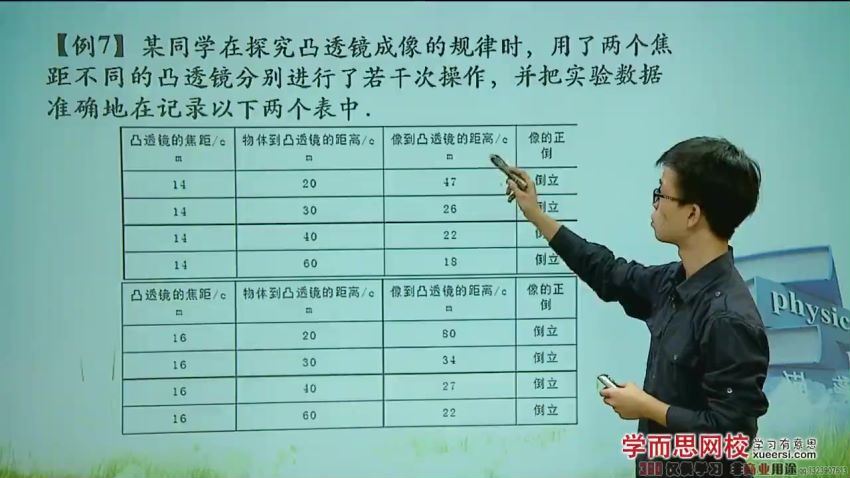 【例7】某同学在探究凸透镜成像的规律时，用了两个焦
距不同的凸透镜分别进行了若干次操作，并把实验数据
准确地在记录以下两个表中．
凸透镜的焦距/cm 物体到凸透镜的距离/cm 像到凸透镜的距离/cm 像的正倒
14 20 47 倒立
14 30 26 倒立
14 40 22 倒立
14 60 18 倒立
凸透镜的焦距/cm 物体到凸透镜的距离/cm 像到凸透镜的距离/cm 像的正倒
16 20 80 倒立
16 30 34 倒立
16 40 27 倒立
16 60 22 倒立
physic
学而思网校 学习有意思
xueersi.com
商业用途